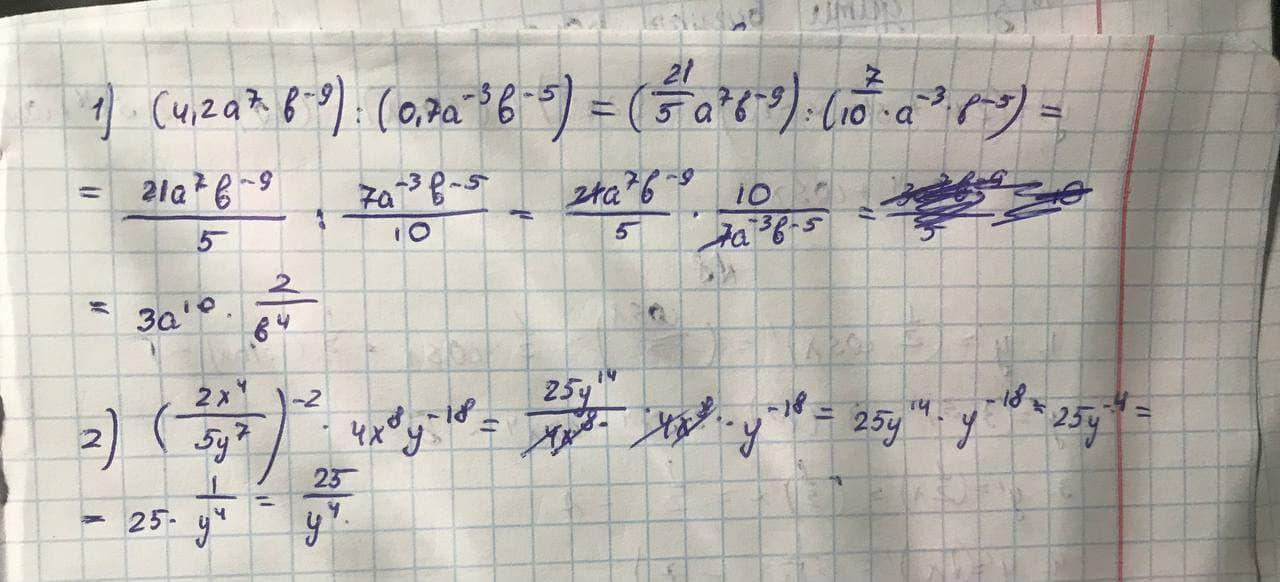 1) (4,2a⁷ · b⁻⁹) : (0,7a⁻³b⁻⁵) = (21/5 a⁷b⁻⁹) : (7/10 · a⁻³ · b⁻⁵) =
= 21a⁷b⁻⁹/5 : 7a⁻³b⁻⁵/10 = 21a⁷b⁻⁹/5 · 10/7a⁻³b⁻⁵ =
= 3a¹⁰ · 2/b⁴
2) (2x⁴/5y⁷)⁻² · 4x⁸y⁻¹⁸ = 25y¹⁴/4x⁸ · 4x⁸ · y⁻¹⁸ = 25y¹⁴ · y⁻¹⁸ = 25y⁻⁴ =
= 25 · 1/y⁴ = 25/y⁴.